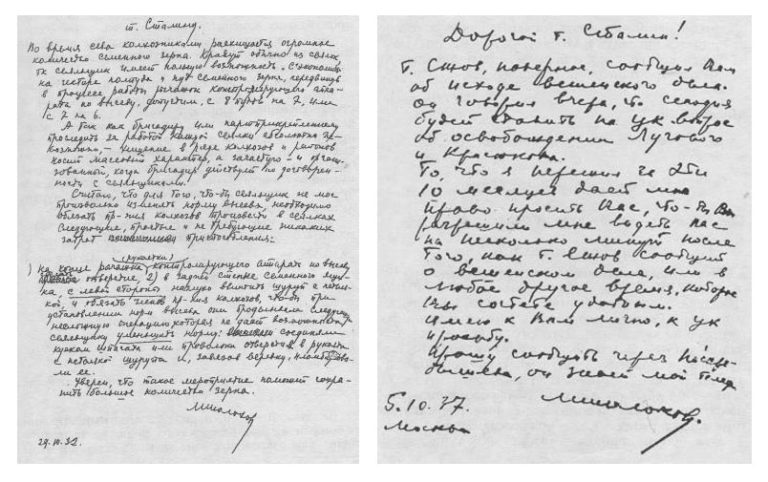 т. Сталину.
Во время сева колхозниками расхищается огромное
количество семенного зерна. Крадут обычно из сеялок,
тк сеяльщик имеет полную возможность сэкономить
на гектаре полтора - пуд семенного зерна, передвинув
в процессе работы рычажок контролирующего аппа-
рата по высеву, допустим, с 8 пудов на 7, или
с 7 на 6.
А так как бригадиру или партприкрепленному
проследить за работой каждой сеялки абсолютно не-
возможно, - хищение в ряде колхозов и районов
носит массовый характер, а зачастую - и органи-
зованный, когда бригадир действует по договорен-
ности с сеяльщиками.
Считаю, что для того, что-бы сеяльщик не мог
произвольно изменять норму высева, необходимо
обязать пр-ния колхозов произвести в сеялках
следующие, простые и не требующие никаких
затрат приспособления:
(рукоятки)
1) на конце контролирующего аппарата по высеву
отверстие, 2) в задней стенке семенного ящи-
ка, с левой стороны наглухо ввинтить шуруп с петель-
кой, и обязать пр-ния колхозов, что-бы при
установлении норм высева они проделывали следующую
несложную операцию, которая не даст возможности
сеяльщику уменьшить норму: соединять
куском шпагата или проволоки отверстие в рукоятке
с петелкой шурупа и, завязав веревку, пломбирова-
ли ее.
Уверен, что такое мероприятие поможет сохра-
нить большое количество зерна.
М. Шолохов
29.10.32
Дорогой т. Сталин!
Т. Ежов, наверное, сообщил Вам
об исходе вешенского дела.
Он говорил вчера, что сегодня
будет ставить на ЦК вопрос
об освобождении Лугового
и Красюкова.
То, что я пережил за эти
10 месяцев дает мне
право просить Вас, что-бы Вы
разрешили мне видеть Вас
на несколько минут после
того, как т. Ежов сообщит
о вешенском деле, или в
любое другое время, которое
Вы сочтете удобным.
Имею к Вам лично, к ЦК
просьбу.
Прошу сообщить через Поскре-
бышева, он знает мой телеф
5.10.37.
Москва
М. Шолохов.